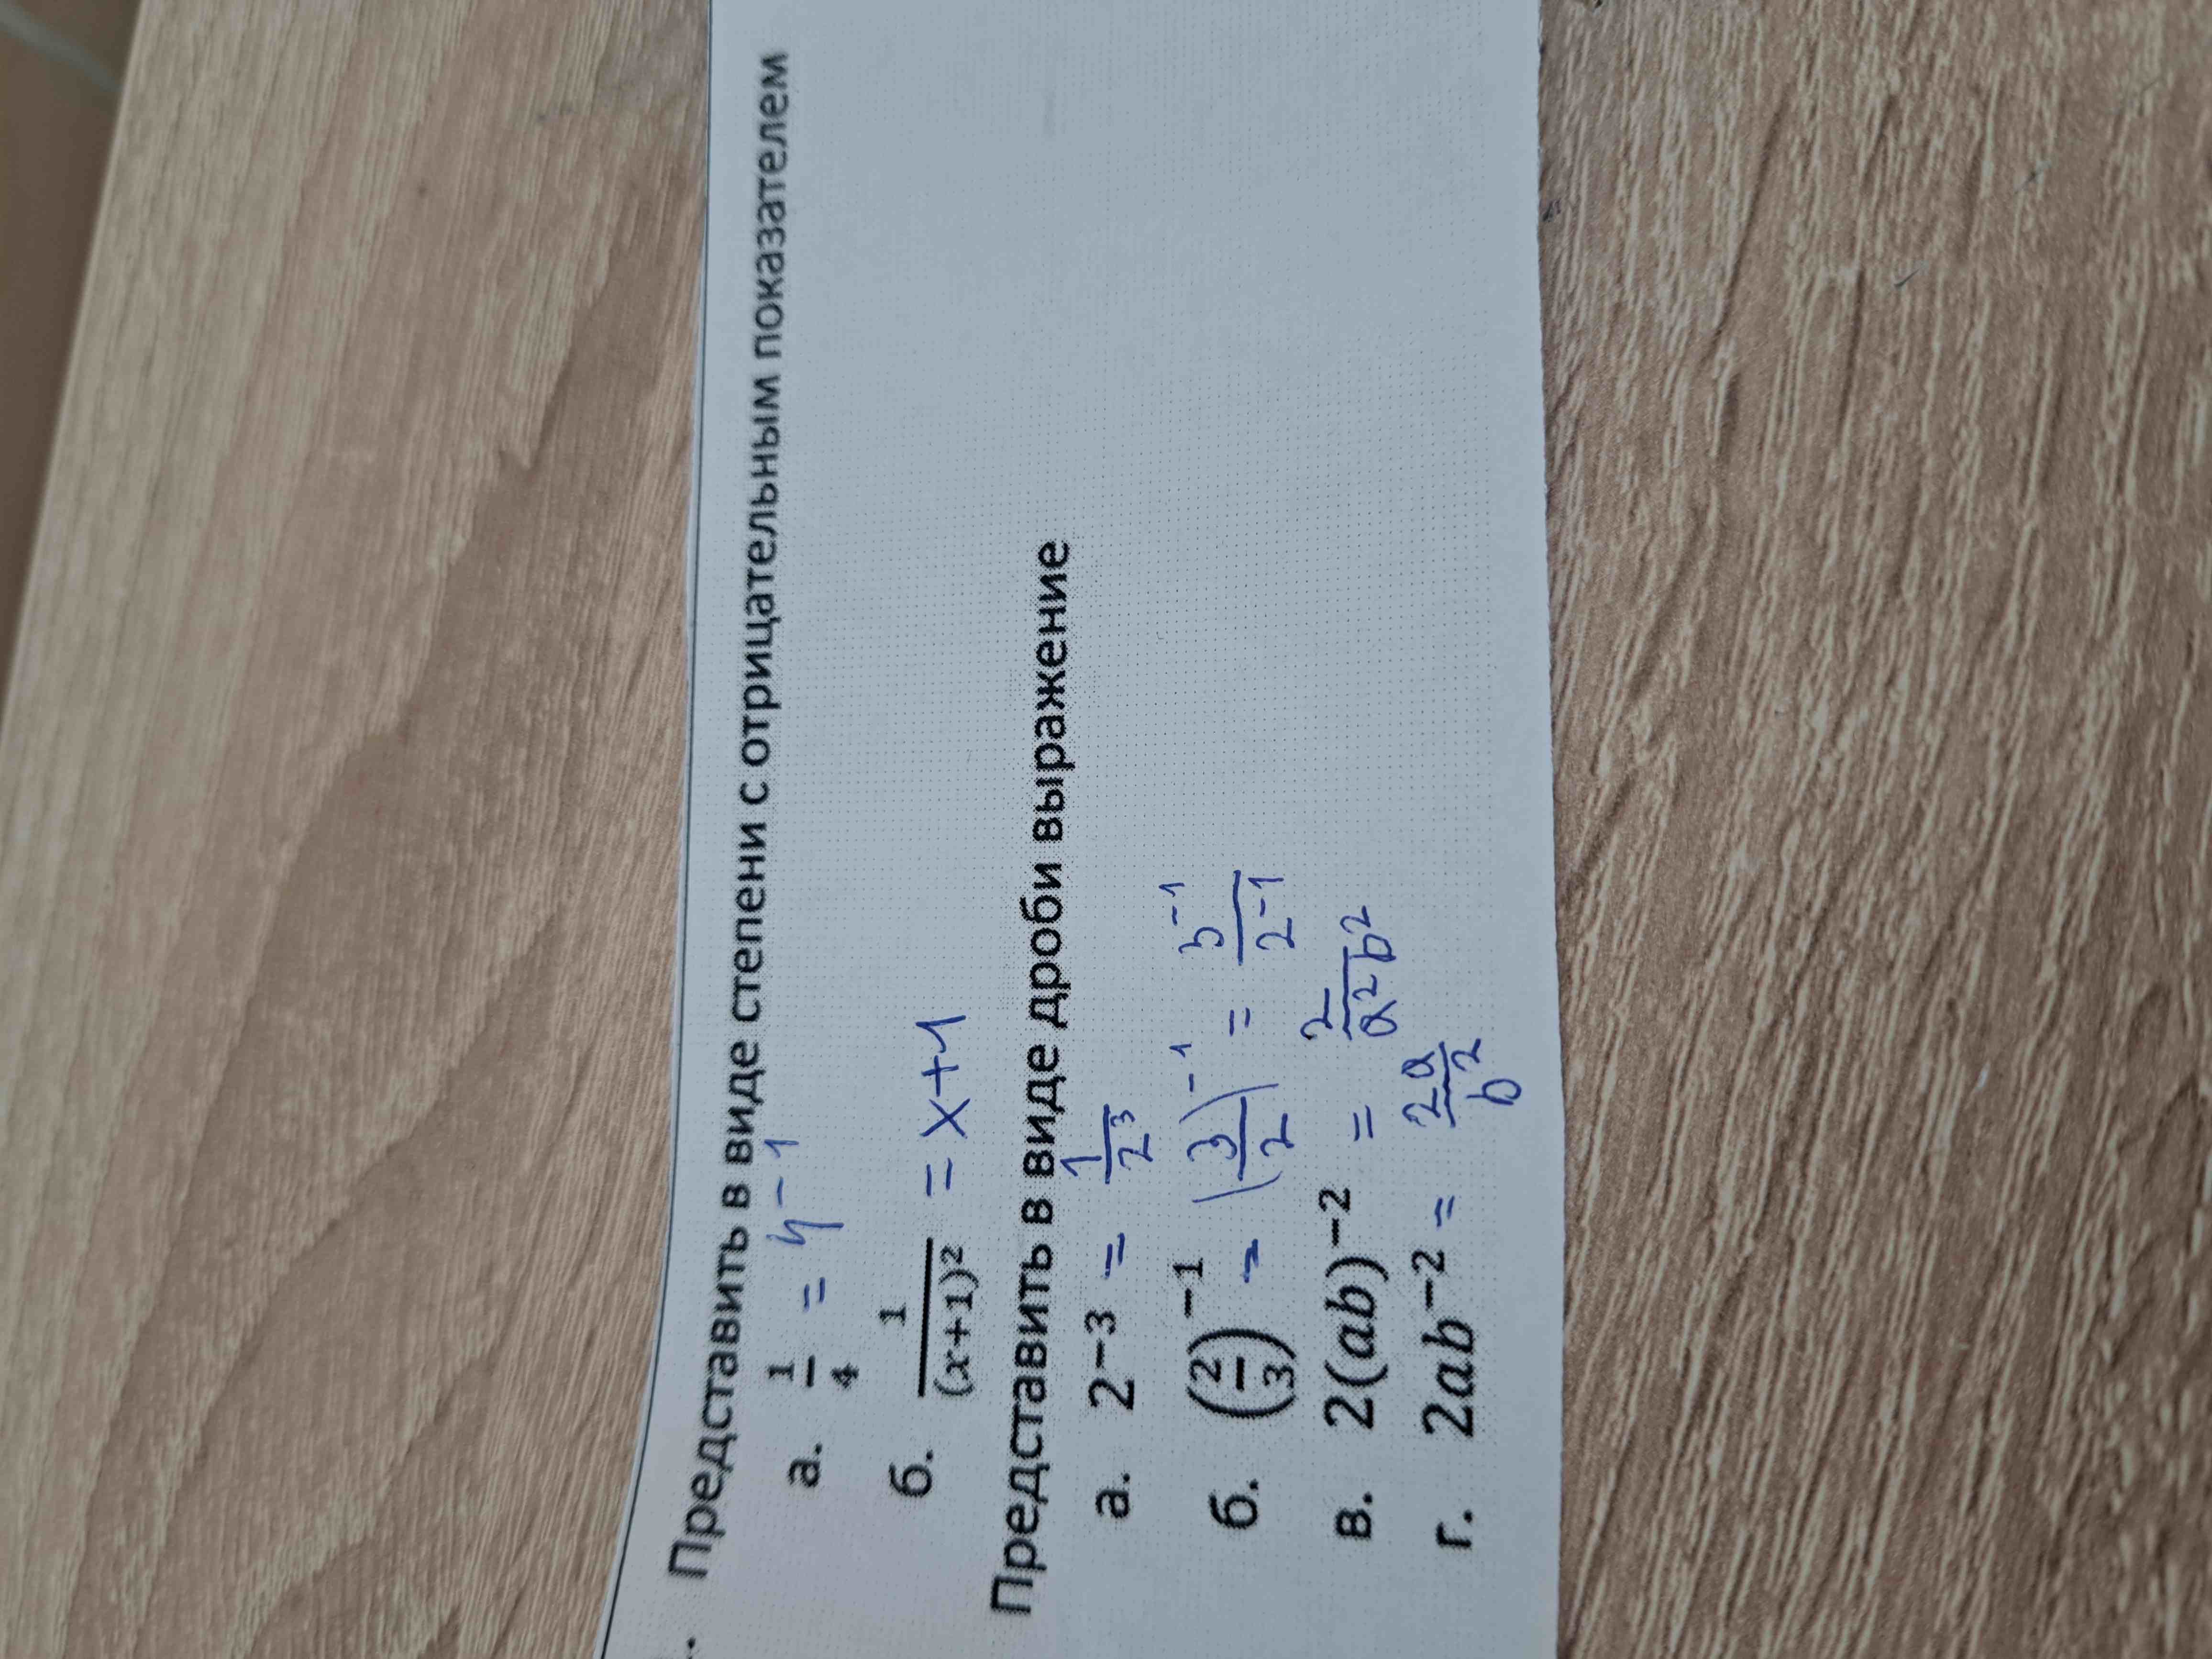 . Представить в виде степени с отрицательным показателем
а. 1/4 = 4^-1
б. 1/(x+1)² = x+1
Представить в виде дроби выражение
а. 2⁻³ = 1/2³
б. (2/3)⁻¹ = (3/2)⁻¹ = 3⁻¹/2⁻¹
в. 2(ab)⁻² = 2/a²b²
г. 2ab⁻² = 2a/b²